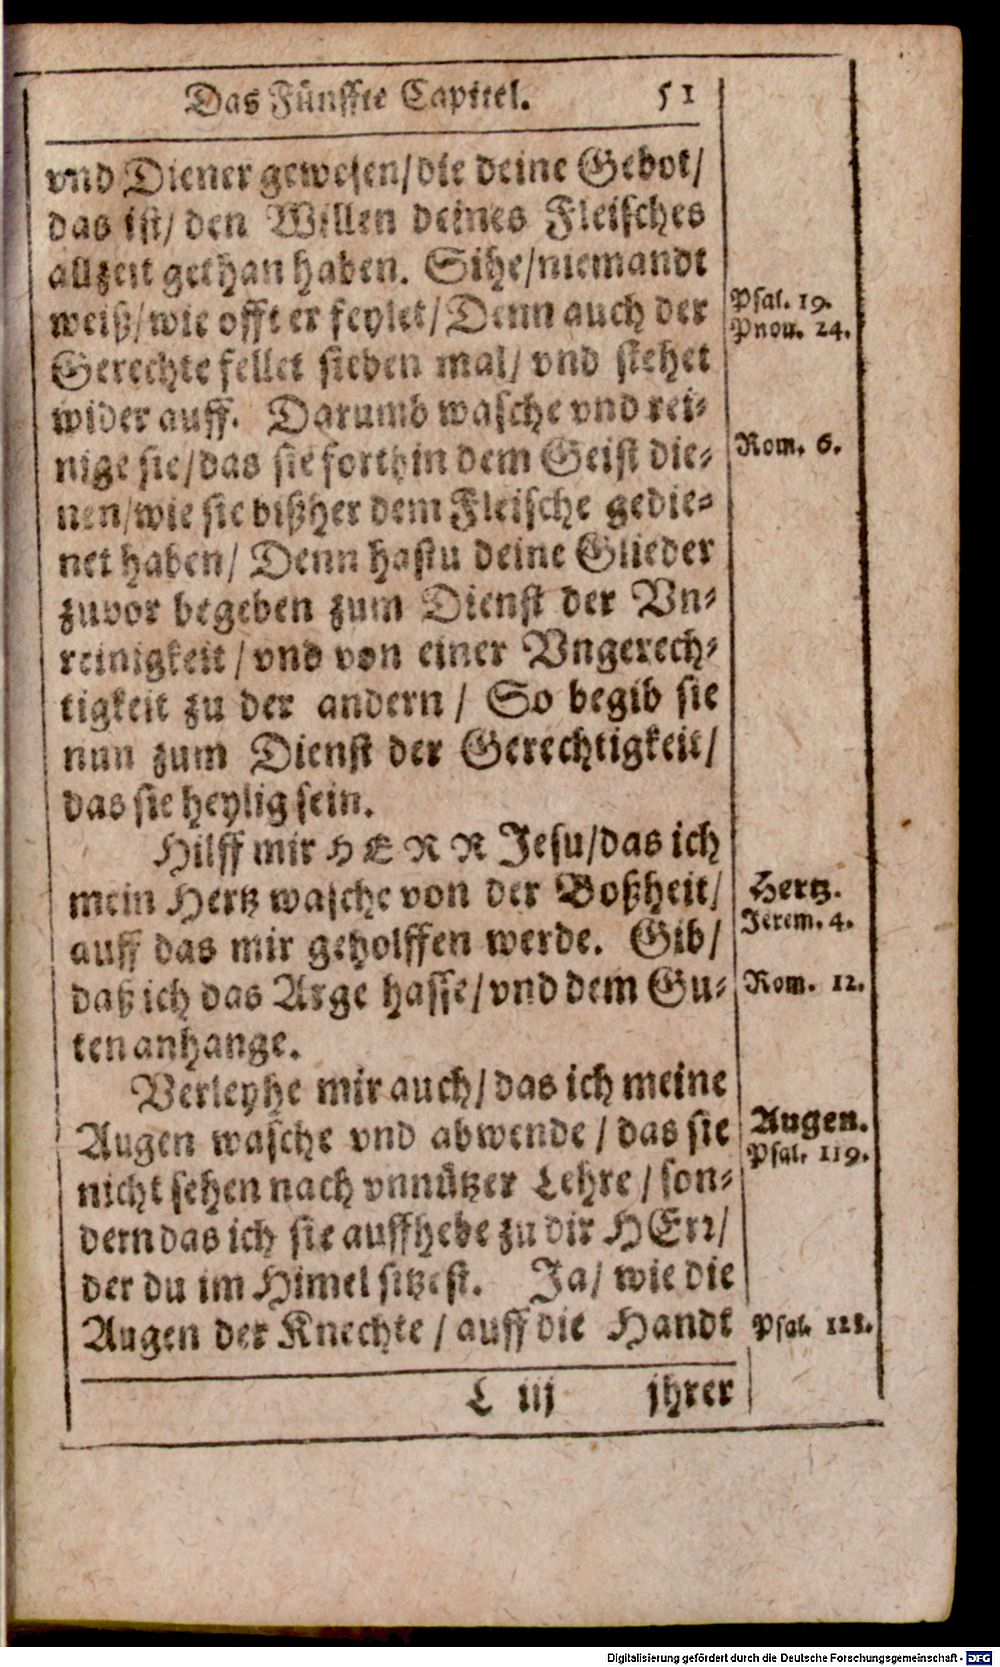 Das Fünffte Capitel. 51
vnd Diener gewesen/die deine Gebot/
das ist/ den Willen deines Fleisches
allzeit gethan haben. Sihe/niemandt
weiß/wie offt er feylet/Denn auch der
Psal. 19.
Prou. 24.
Gerechte fellet sieben mal/ vnd stehet
wider auff. Darumb wasche vnd rei-
nige sie/das sie forthin dem Geist die-
Rom. 6.
nen/wie sie bißher dem Fleische gedie-
net haben/ Denn hastu deine Glieder
zuvor begeben zum Dienst der Vn-
reinigkeit/vnd von einer Vngerech-
tigkeit zu der andern/ So begib sie
nun zum Dienst der Gerechtigkeit/
das sie heylig sein.
Hilff mir HERR Jesu/das ich
mein Hertz wasche von der Boßheit/
Hertz.
Jerem. 4.
auff das mir geholffen werde. Gib/
daß ich das Arge hasse/vnd dem Gu-
Rom. 12.
ten anhange.
Verleyhe mir auch/das ich meine
Augen wasche vnd abwende/das sie
Augen.
Psal. 119.
nicht sehen nach vnnützer Lehre/son-
dern das ich sie auffhebe zu dir HErr/
der du im Himel sitzest. Ja/ wie die
Augen der Knechte/auff die Handt
Psal. 121.
L iij jhrer
Digitalisierung gefördert durch die Deutsche Forschungsgemeinschaft - DFG